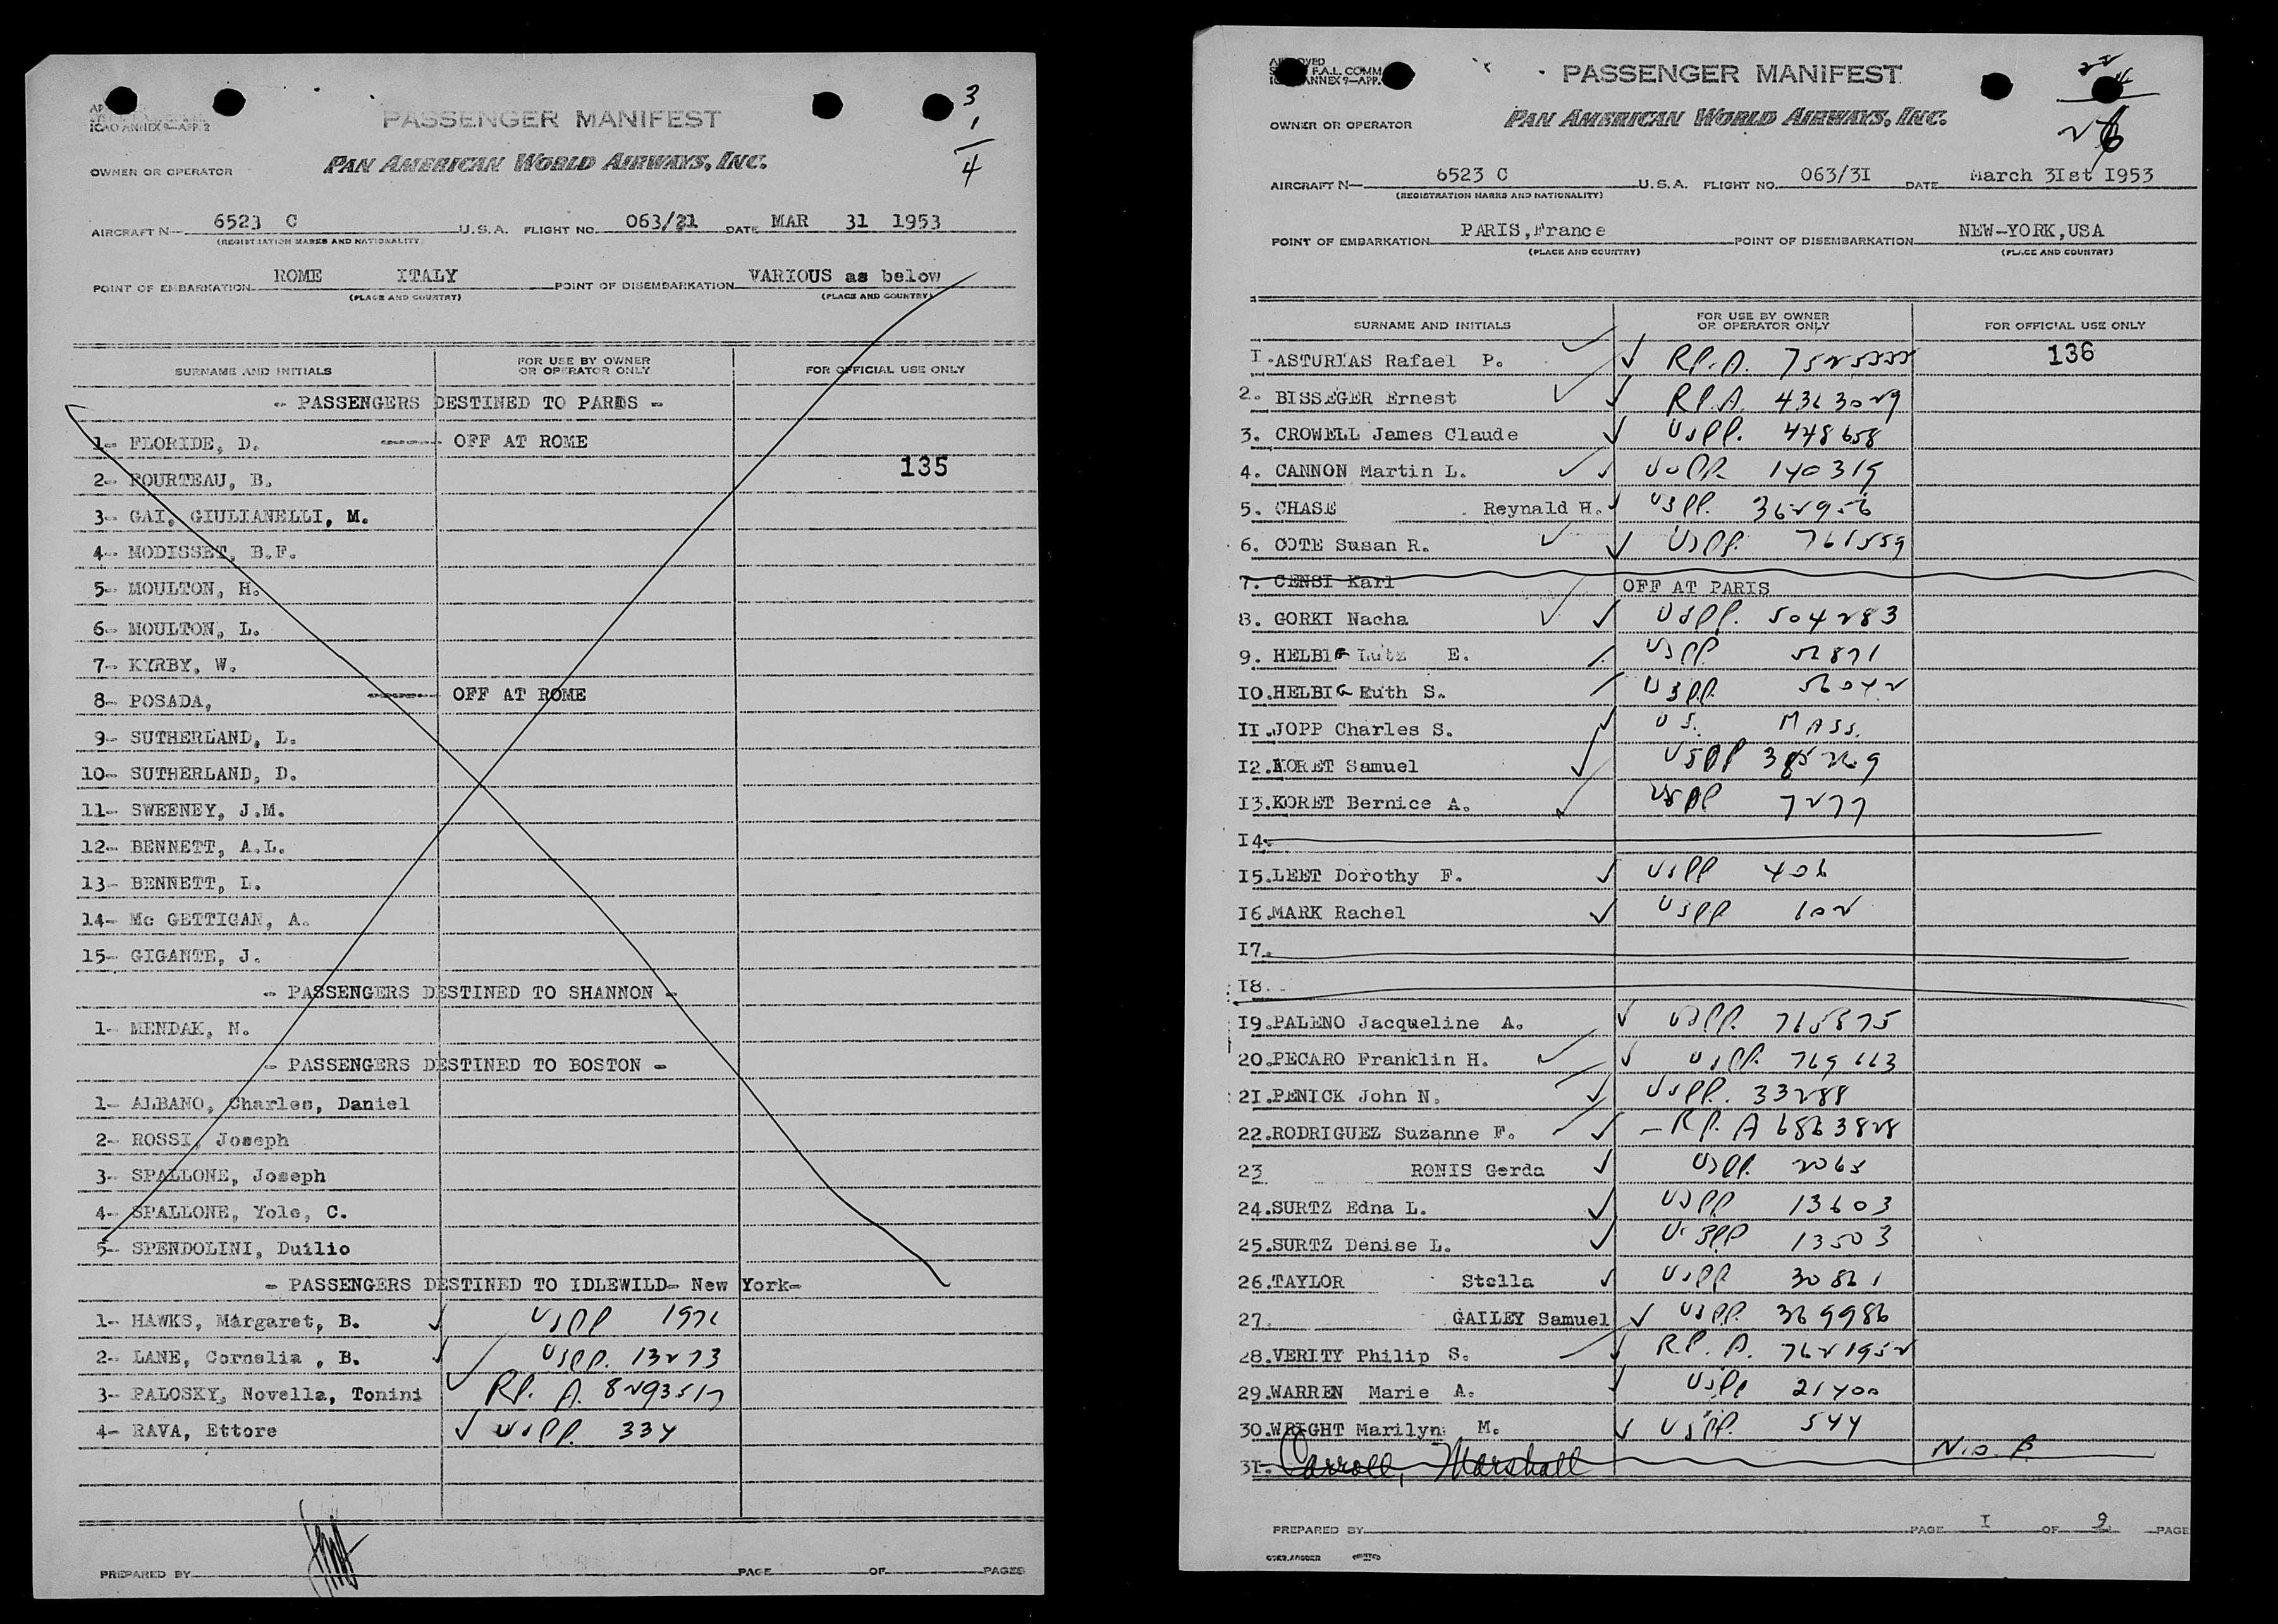 ICAO ANNEX 9—APP. 2
3
1
4
PASSENGER MANIFEST
PAN AMERICAN WORLD AIRWAYS, INC.
OWNER OR OPERATOR
AIRCRAFT N— 6523 C U.S.A. FLIGHT NO. 063/21 DATE MAR 31 1953
(REGISTRATION MARKS AND NATIONALITY)
POINT OF EMBARKATION ROME ITALY POINT OF DISEMBARKATION VARIOUS as below
(PLACE AND COUNTRY) (PLACE AND COUNTRY)
SURNAME AND INITIALS FOR USE BY OWNER OR OPERATOR ONLY FOR OFFICIAL USE ONLY
- PASSENGERS DESTINED TO PARIS -
1- FLORIDE, D. ----- OFF AT ROME
135
2- POURTEAU, B.
3- GAI, GIULIANELLI, M.
4- MODISSET, B.F.
5- MOULTON, H.
6- MOULTON, L.
7- KYRBY, W.
8- POSADA, ----- OFF AT ROME
9- SUTHERLAND, L.
10- SUTHERLAND, D.
11- SWEENEY, J.M.
12- BENNETT, A.L.
13- BENNETT, L.
14- Mc GETTIGAN, A.
15- GIGANTE, J.
- PASSENGERS DESTINED TO SHANNON -
1- MENDAK, N.
- PASSENGERS DESTINED TO BOSTON -
1- ALBANO, Charles, Daniel
2- ROSSI, Joseph
3- SPALLONE, Joseph
4- SPALLONE, Yole, C.
5- SPENDOLINI, Duilio
- PASSENGERS DESTINED TO IDLEWILD- New York-
1- HAWKS, Margaret, B. USPP 1971
2- LANE, Cornelia , B. USPP. 13273
3- PALOSKY, Novella, Tonini RP. A. 8293517
4- RAVA, Ettore USPP. 334
PREPARED BY PAGE OF PAGES
APPROVED
F.A.L. COMM
ICAO ANNEX 9—APP.
PASSENGER MANIFEST
22
4
26
OWNER OR OPERATOR PAN AMERICAN WORLD AIRWAYS, INC.
AIRCRAFT N— 6523 C U.S.A. FLIGHT NO. 063/3I DATE March 3Ist I953
(REGISTRATION MARKS AND NATIONALITY)
POINT OF EMBARKATION PARIS,France POINT OF DISEMBARKATION NEW-YORK,USA
(PLACE AND COUNTRY) (PLACE AND COUNTRY)
SURNAME AND INITIALS FOR USE BY OWNER OR OPERATOR ONLY FOR OFFICIAL USE ONLY
I.ASTURIAS Rafael P. RP.A. 7525222 136
2. BISSEGER Ernest RP.A. 4363029
3. CROWELL James Claude USPP. 448658
4. CANNON Martin L. USPP. 140319
5. CHASE Reynald H. USPP. 362956
6. COTE Susan R. USPP. 761559
7. CENSI Karl OFF AT PARIS
8. GORKI Nacha USPP. 504283
9. HELBIG Lutz E. USPP 52871
I0.HELBIG Ruth S. USPP. 56042
II.JOPP Charles S. U S. MASS.
I2.KORET Samuel USPP 385229
I3.KORET Bernice A. USPP 7277
I4.
I5.LEET Dorothy F. USPP 406
I6.MARK Rachel USPP 102
I7.
I8.
I9.PALENO Jacqueline A. USPP. 765875
20.PECARO Franklin H. USPP. 769663
2I.PENICK John N. USPP. 33288
22.RODRIGUEZ Suzanne F. - RP. A 6863828
23 RONIS Gerda USPP. 2065
24.SURTZ Edna L. USPP 13603
25.SURTZ Denise L. USPP 13503
26.TAYLOR Stella USPP 30861
27. GAILEY Samuel USPP. 369986
28.VERITY Philip S. RP. A. 7621952
29.WARREN Marie A. USPP 21400
30.WRIGHT Marilyn M. USPP. 544
3I. Carroll, Marshall N.O.B.
PREPARED BY PAGE I OF 9 PAGE